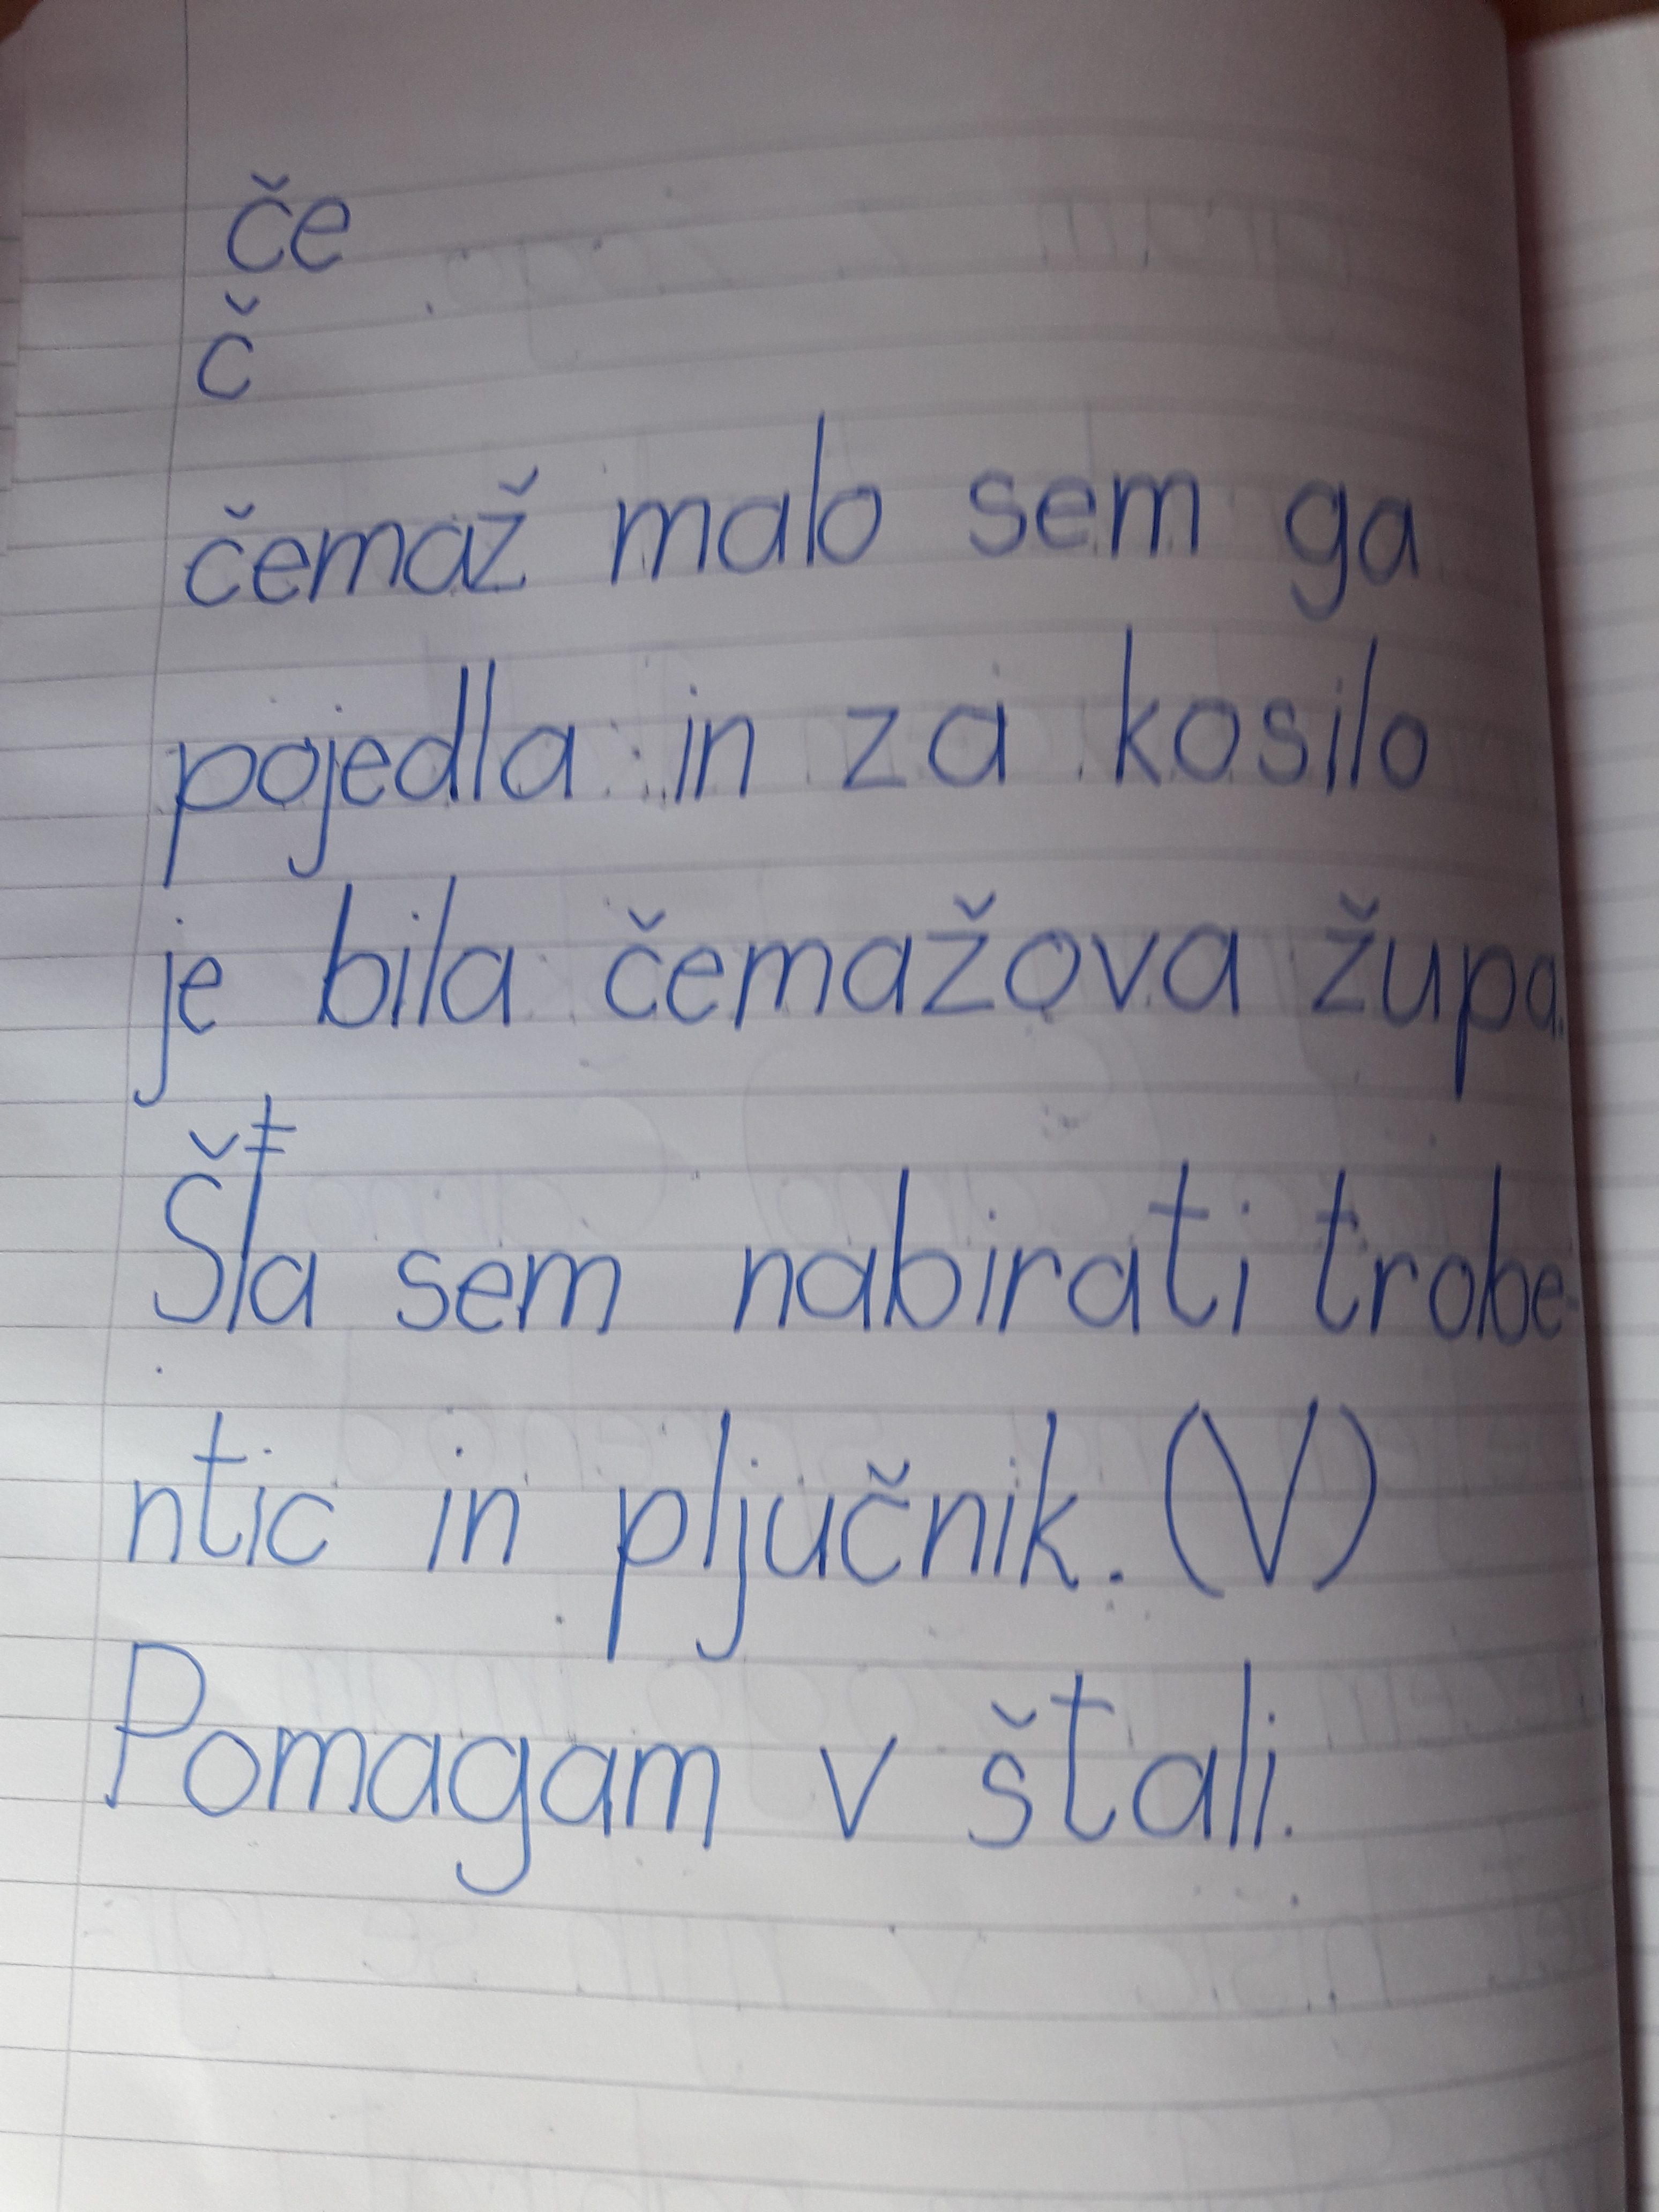 če
č
čemaž malo sem ga
pojedla in za kosilo
je bila čemažova župa.
Šla sem nabirati trobe-
ntic in pljučnik. (V)
Pomagam v štali.